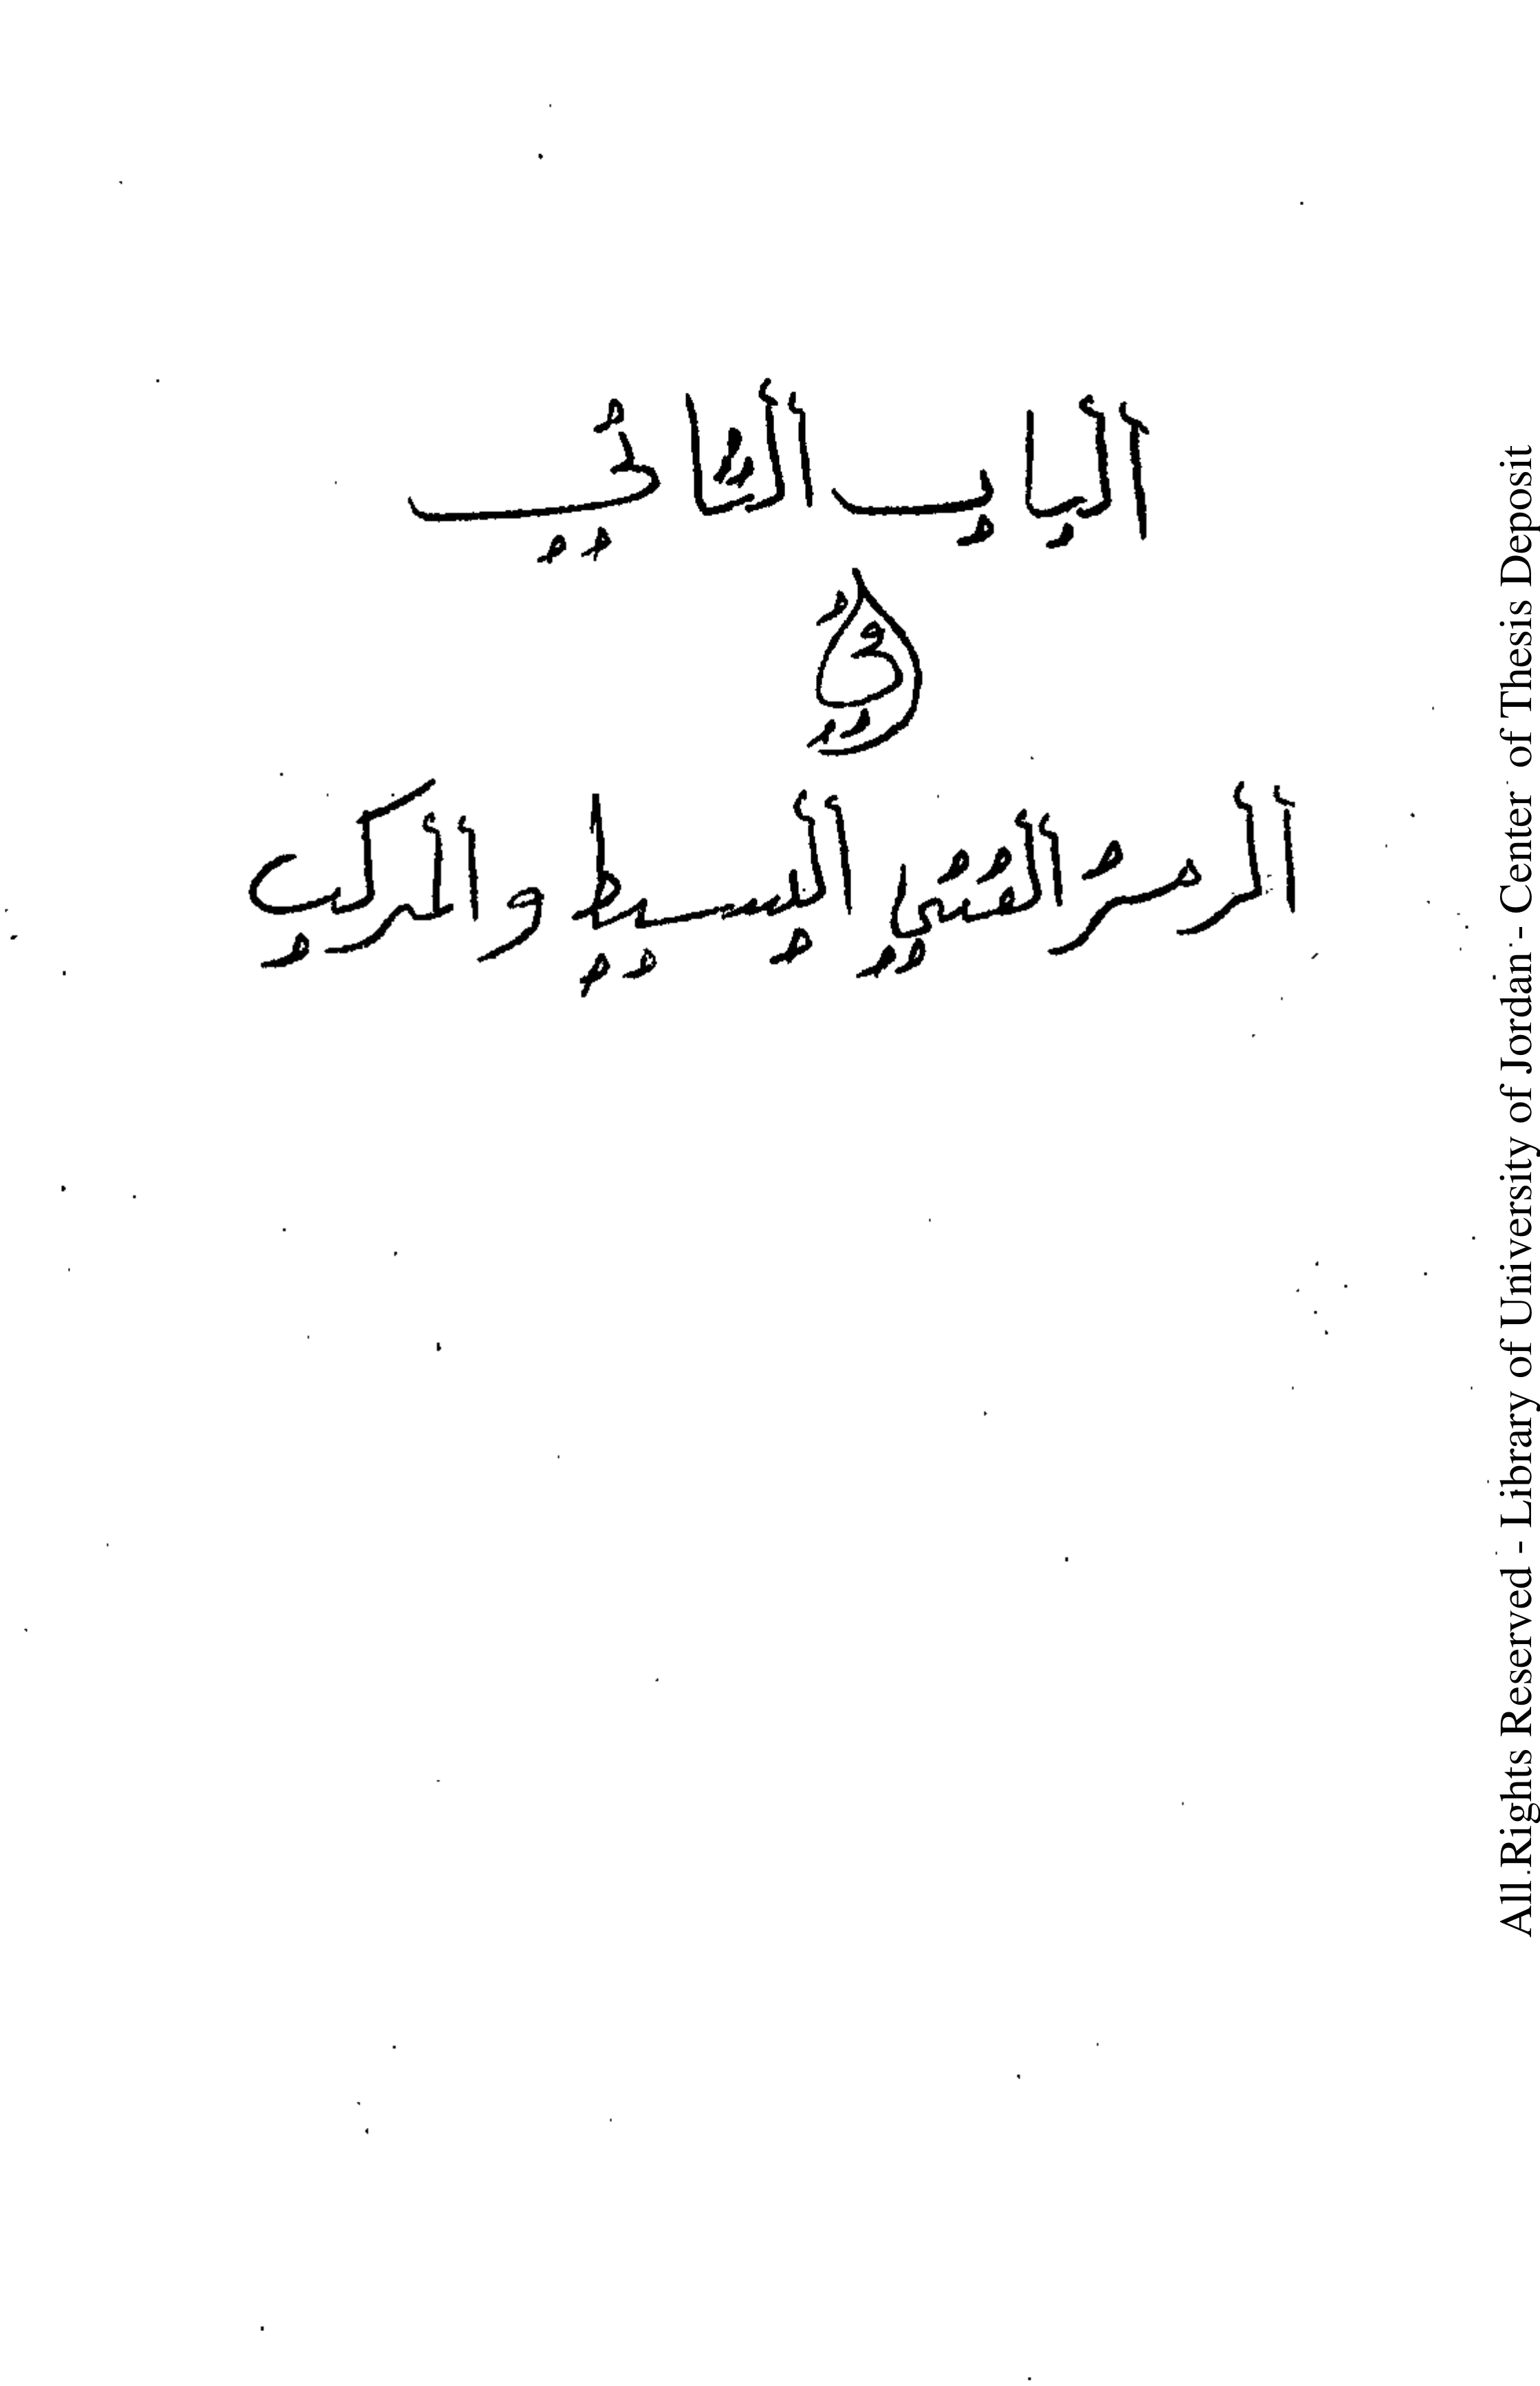 الباب الثاني
في
الرمز الفني البسيط والمركب
All Rights Reserved - Library of University of Jordan - Center of Thesis Deposit